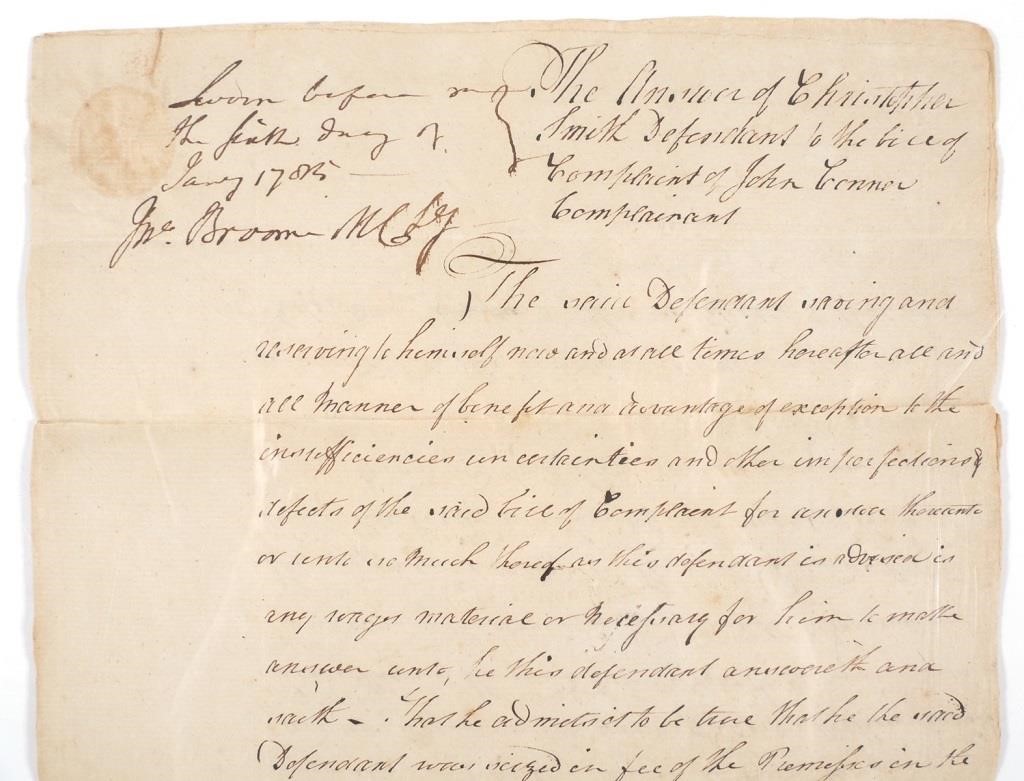 Sworn before me
the sixth day of
Jany 1785
Jno. Broome
The Answer of Christopher
Smith Defendant to the bill of
Complaint of John Conner
Complainant
The said Defendant saving and
reserving to himself now and at all times hereafter all and
all Manner of benefit and advantage of exception to the
insufficiencies uncertainties and other imperfections &
defects of the said bill of Complaint for answer thereunto
or unto so much thereof as this defendant is advised is
any ways material or Necessary for him to make
answer unto, he this defendant answereth and
saith - That he admits it to be true that he the said
Defendant was seized in fee of the Premisses in the